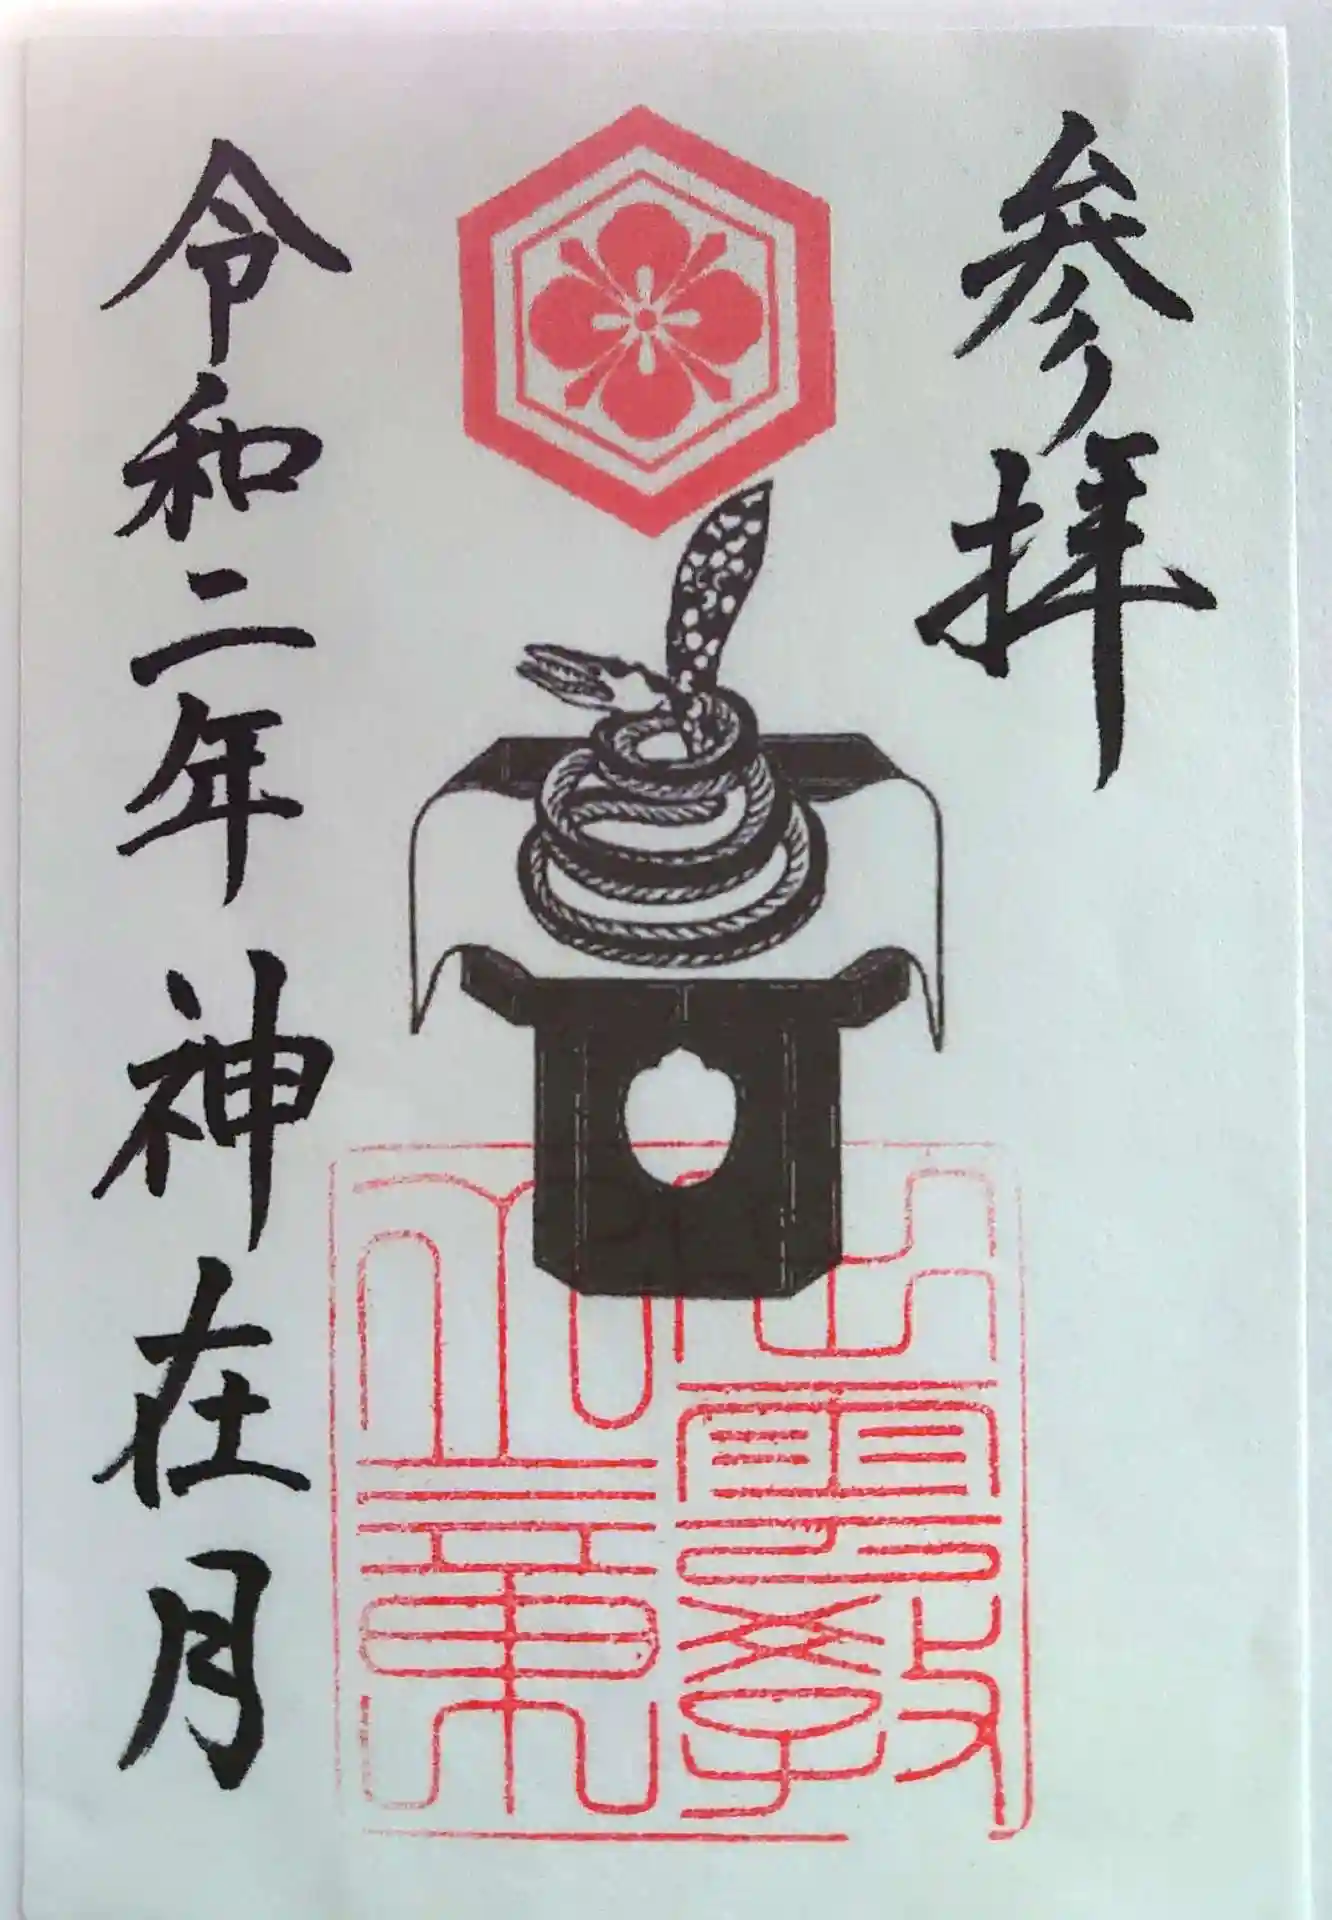 参拝
出雲教
令和二年 神在月